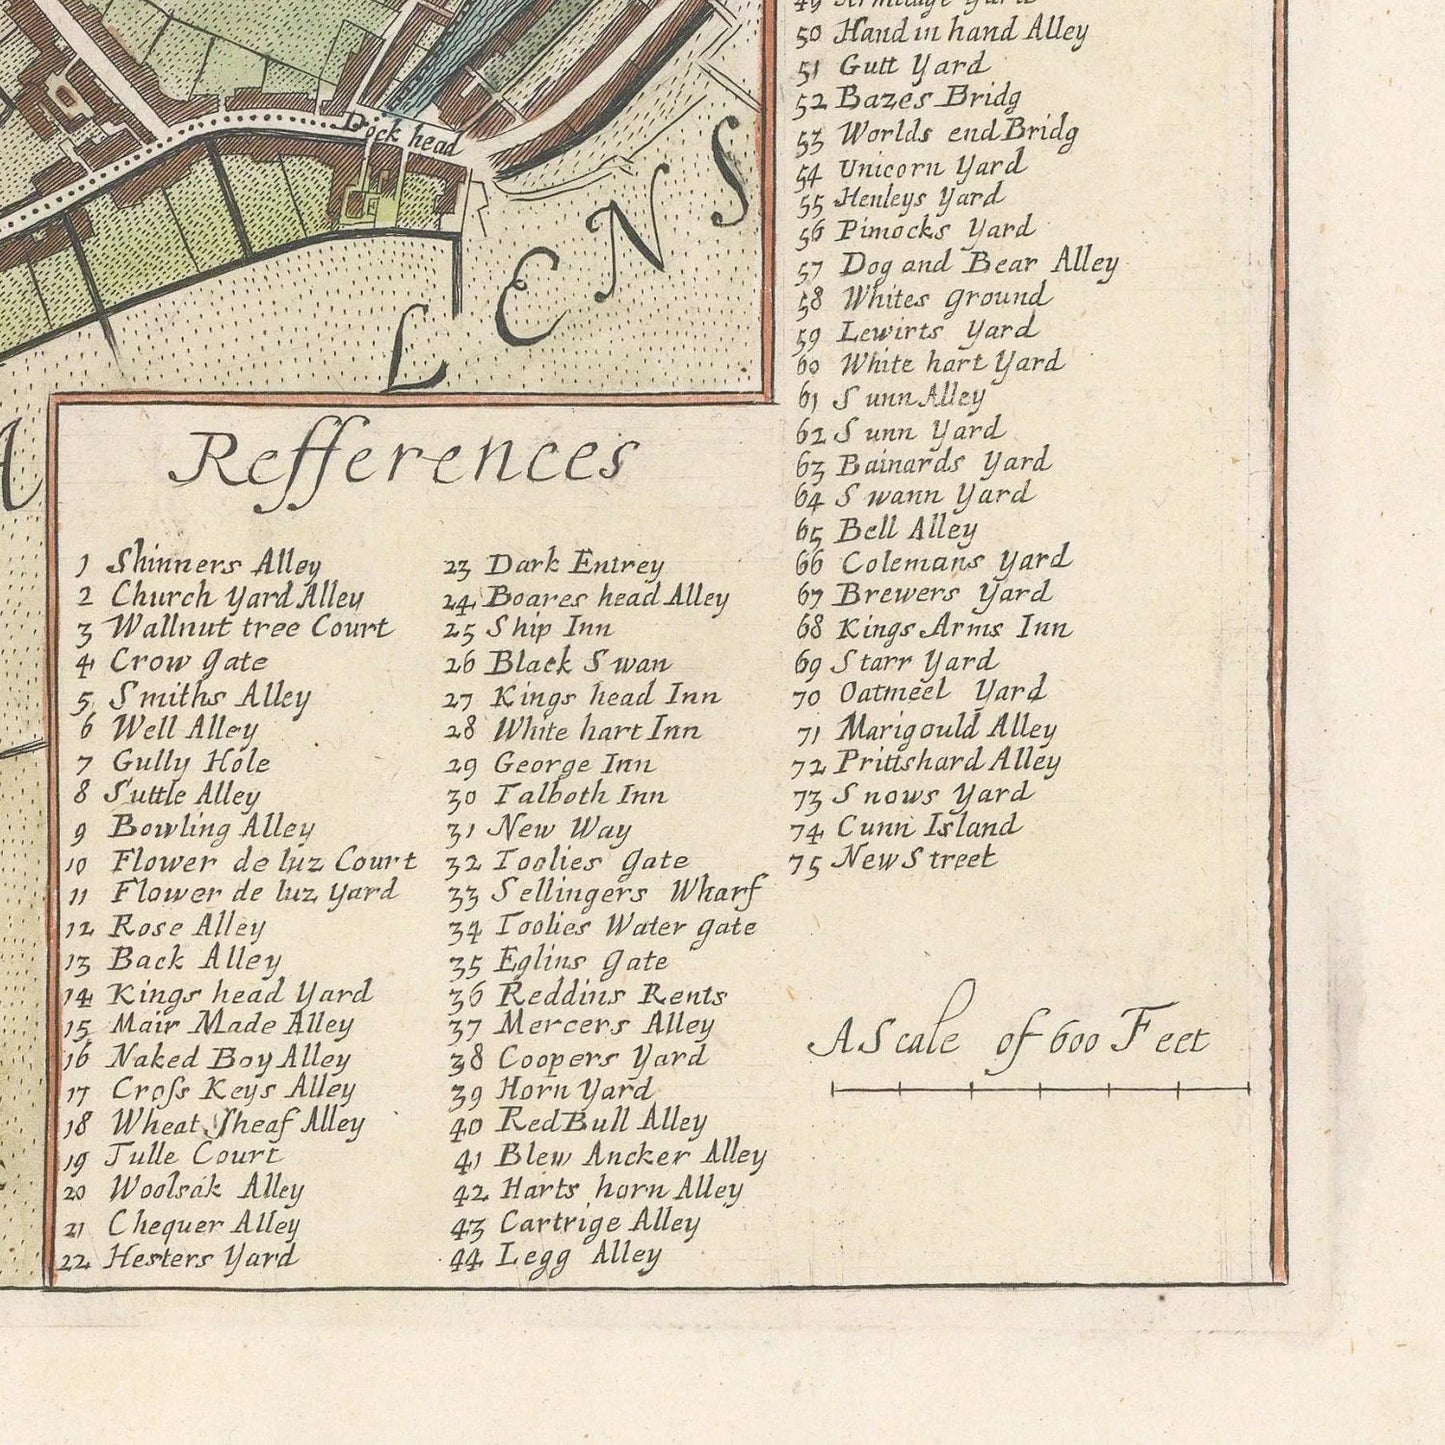 Dock head
LENS
Refferences
1 Shinners Alley
2 Church Yard Alley
3 Wallnut tree Court
4 Crow Gate
5 Smiths Alley
6 Well Alley
7 Gully Hole
8 Suttle Alley
9 Bowling Alley
10 Flower de luz Court
11 Flower de luz Yard
12 Rose Alley
13 Back Alley
14 Kings head Yard
15 Mair Made Alley
16 Naked Boy Alley
17 Croſs Keys Alley
18 Wheat Sheaf Alley
19 Tulle Court
20 Woolsak Alley
21 Chequer Alley
22 Hesters Yard
23 Dark Entrey
24 Boares head Alley
25 Ship Inn
26 Black Swan
27 Kings head Inn
28 White hart Inn
29 George Inn
30 Talboth Inn
31 New Way
32 Toolies Gate
33 Sellingers Wharf
34 Toolies Water gate
35 Eglins Gate
36 Reddins Rents
37 Mercers Alley
38 Coopers Yard
39 Horn Yard
40 Red Bull Alley
41 Blew Ancker Alley
42 Harts horn Alley
43 Cartrige Alley
44 Legg Alley
49 Armitage Yard
50 Hand in hand Alley
51 Gutt Yard
52 Bazes Bridg
53 Worlds end Bridg
54 Unicorn Yard
55 Henleys Yard
56 Pimocks Yard
57 Dog and Bear Alley
58 Whites Ground
59 Lewirts Yard
60 White hart Yard
61 Sunn Alley
62 Sunn Yard
63 Bainards Yard
64 Swann Yard
65 Bell Alley
66 Colemans Yard
67 Brewers Yard
68 Kings Arms Inn
69 Starr Yard
70 Oatmeel Yard
71 Marigould Alley
72 Prittshard Alley
73 Snows Yard
74 Cunn Island
75 New Street
A Scale of 600 Feet